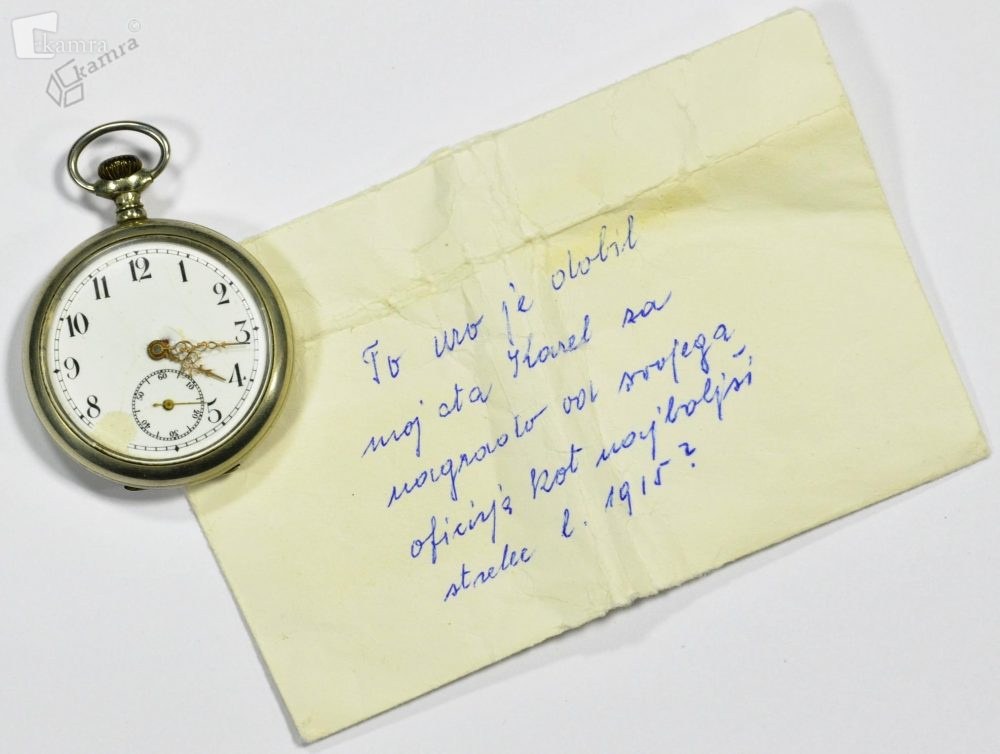 ekamra
kamra
©
12
1
2
3
4
5
8
9
10
11
60
10
20
40
50
To uro je dobil
moj ata Karel za
nagrado od svojega
oficirja kot najboljši
strelec l. 1915?